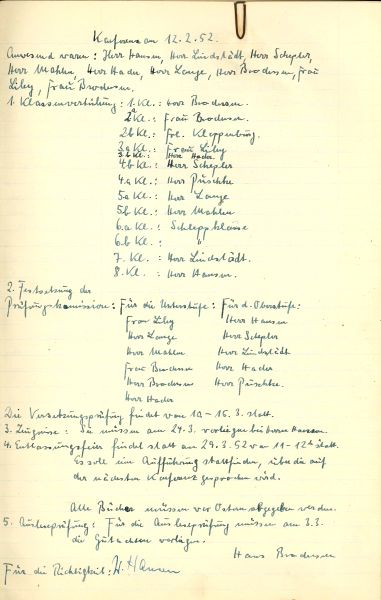 Konferenz am 12.2.52.
Anwesend waren: Herr Hansen, Herr Lindstädt, Herr Schepler,
Herr Mahlen, Herr Hader, Herr Lange, Herr Brodersen, Frau
Liley, Frau Brodersen.
1. Klassenverteilung: 1. Kl.: Herr Brodersen.
2a Kl.: Frau Brodersen.
2b Kl.: Frl. Kloppenburg.
3a Kl.: Frau Liley
3b Kl.: Herr Hader
4b Kl.: Herr Schepler
4a Kl.: Herr Püschke
5a Kl.: Herr Lange
5b Kl.: Herr Mahlen
6.a Kl.: Schleppklasse
6.b Kl.: "
7. Kl.: Herr Lindstädt.
8. Kl.: Herr Hansen.
2. Festsetzung der
Prüfungskommission: Für die Unterstufe: Für d. Oberstufe:
Frau Liley Herr Hansen
Herr Lange Herr Schepler
Herr Mahlen Herr Lindstädt
Frau Brodersen Herr Hader
Herr Brodersen Herr Püschke.
Herr Hader
Die Versetzungsprüfung findet vom 10-15.3. statt.
3. Zeugnisse: Sie müssen am 24.3. vorliegen bei Herrn Hansen.
4. Entlassungsfeier findet statt am 29.3.52 von 11-12h statt.
Es soll ein Aufführung stattfinden, über die auf
der nächsten Konferenz gesprochen wird.
Alle Bücher müssen vor Ostern abgegeben werden.
5. Ausleseprüfung: Für die Ausleseprüfung müssen am 3.3.
die Gutachten vorliegen.
Hans Brodersen
Für die Richtigkeit: H. Hansen